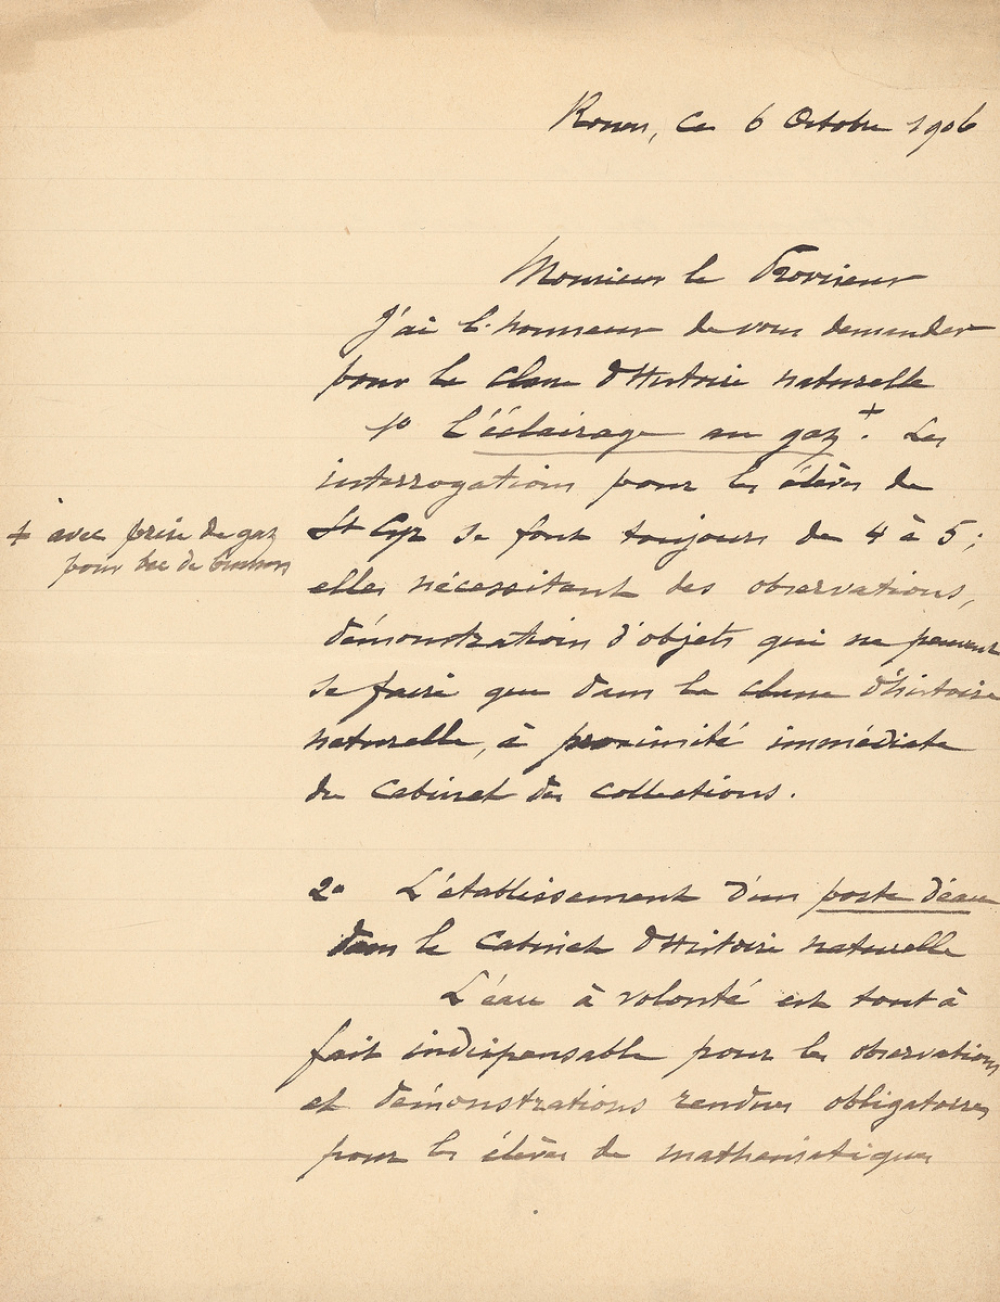 Rouen, ce 6 Octobre 1906
Monsieur le Proviseur
J'ai l'honneur de vous demander
pour la classe d'Histoire naturelle
1º L'éclairage au gaz +. Les
interrogations pour les élèves de
St Cyr se font toujours de 4 à 5;
+ avec prise de gaz
pour bec de bunsen
elles nécessitent des observations,
démonstrations d'objets qui ne peuvent
se faire que dans la classe d'histoire
naturelle, à proximité immédiate
du Cabinet des collections.
2º L'établissement d'un poste d'eau
dans le Cabinet d'Histoire naturelle
L'eau à volonté est tout à
fait indispensable pour les observations
et démonstrations rendues obligatoires
pour les élèves de mathématiques